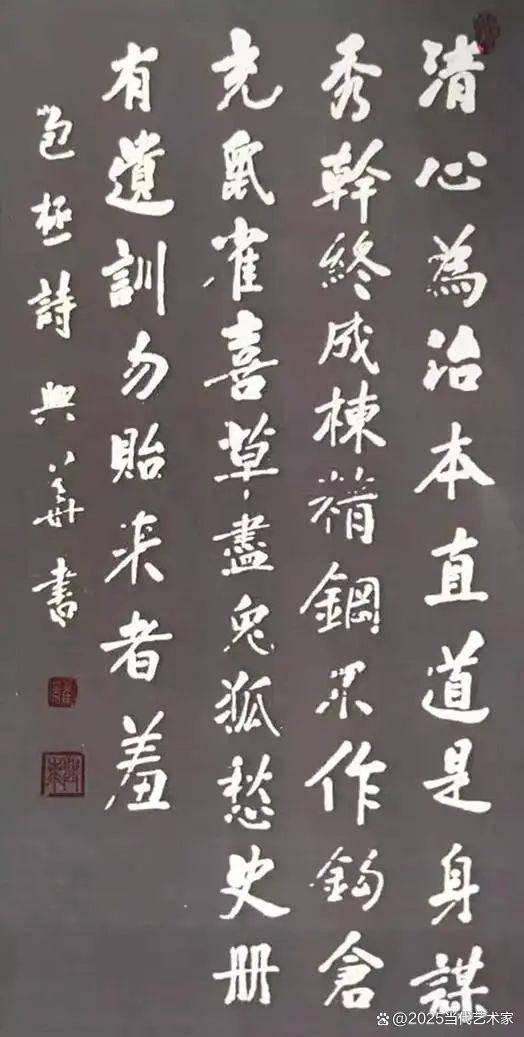 清心為治本直道是身謀
秀幹終成棟精鋼不作鈎倉
充鼠雀喜草盡兔狐愁史册
有遺訓勿貽来者羞
包拯詩興華書
@2025当代艺术家